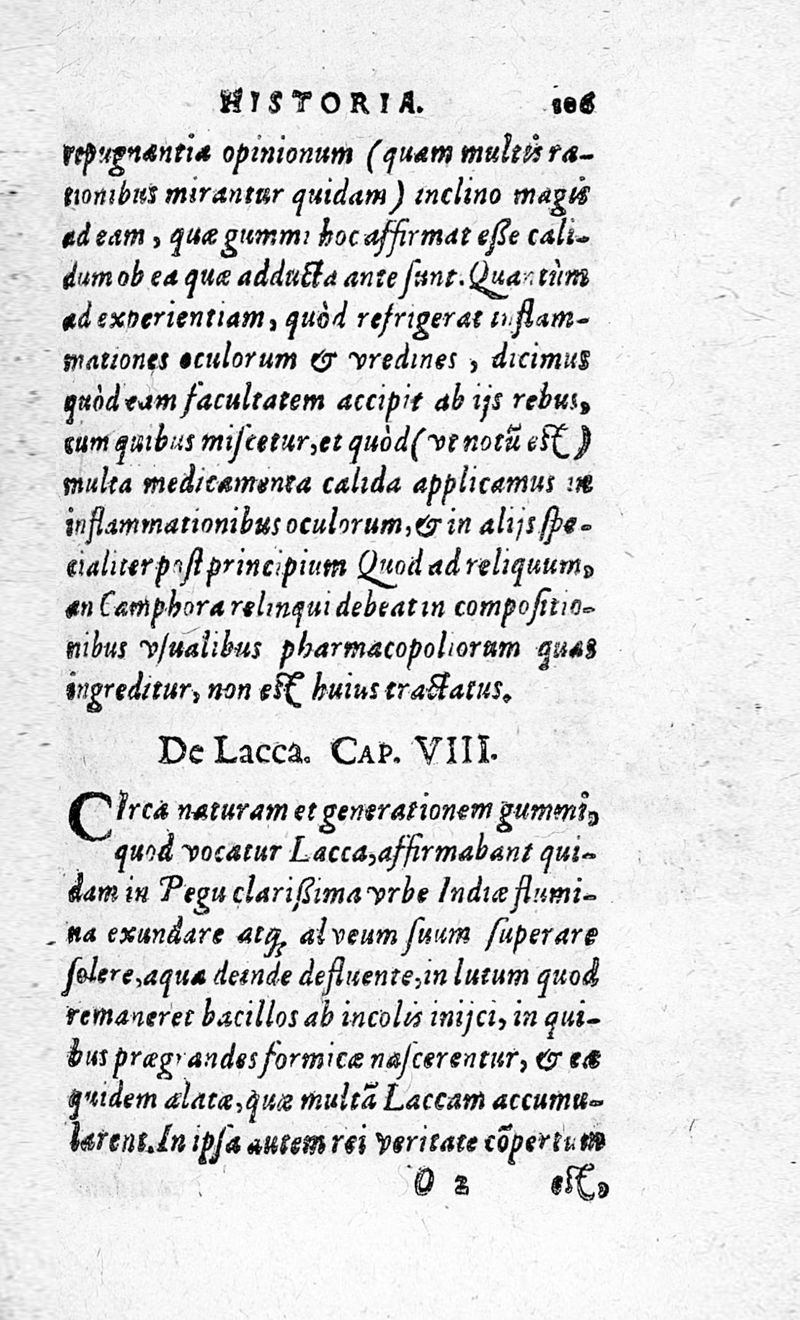 HISTORIA. 106
repugnantia opinionum (quam multis ra-
tionibus mirantur quidam) inclino magis
ad eam, quæ gummi hoc affirmat eße cali-
dum ob ea quæ adducta ante ſunt. Quantùm
ad experientiam, quòd refrigerat inflam-
mationes oculorum & vredines, dicimus
quòd eam facultatem accipit ab ijs rebus,
cum quibus miſcetur, et quòd (vt notũ eſt)
multa medicamenta calida applicamus in
inflammationibus oculorum, & in alijs ſpe-
cialiter poſt principium Quod ad reliquum,
an Camphora relinqui debeat in compoſitio-
nibus vſualibus pharmacopoliorum quas
ingreditur, non eſt huius tractatus.
De Lacca. CAP. VIII.
CIrca naturam et generationem gummi,
quod vocatur Lacca, affirmabant qui-
dam in Pegu clarißima vrbe Indiæ flumi-
na exundare atq; alveum ſuum ſuperare
ſolere, aqua deinde defluente, in lutum quod
remaneret bacillos ab incolis inijci, in qui-
bus prægrandes formicæ naſcerentur, & eæ
quidem alatæ, quæ multã Laccam accumu-
larent. In ipſa autem rei veritate cõpertum
O 2 eſt,